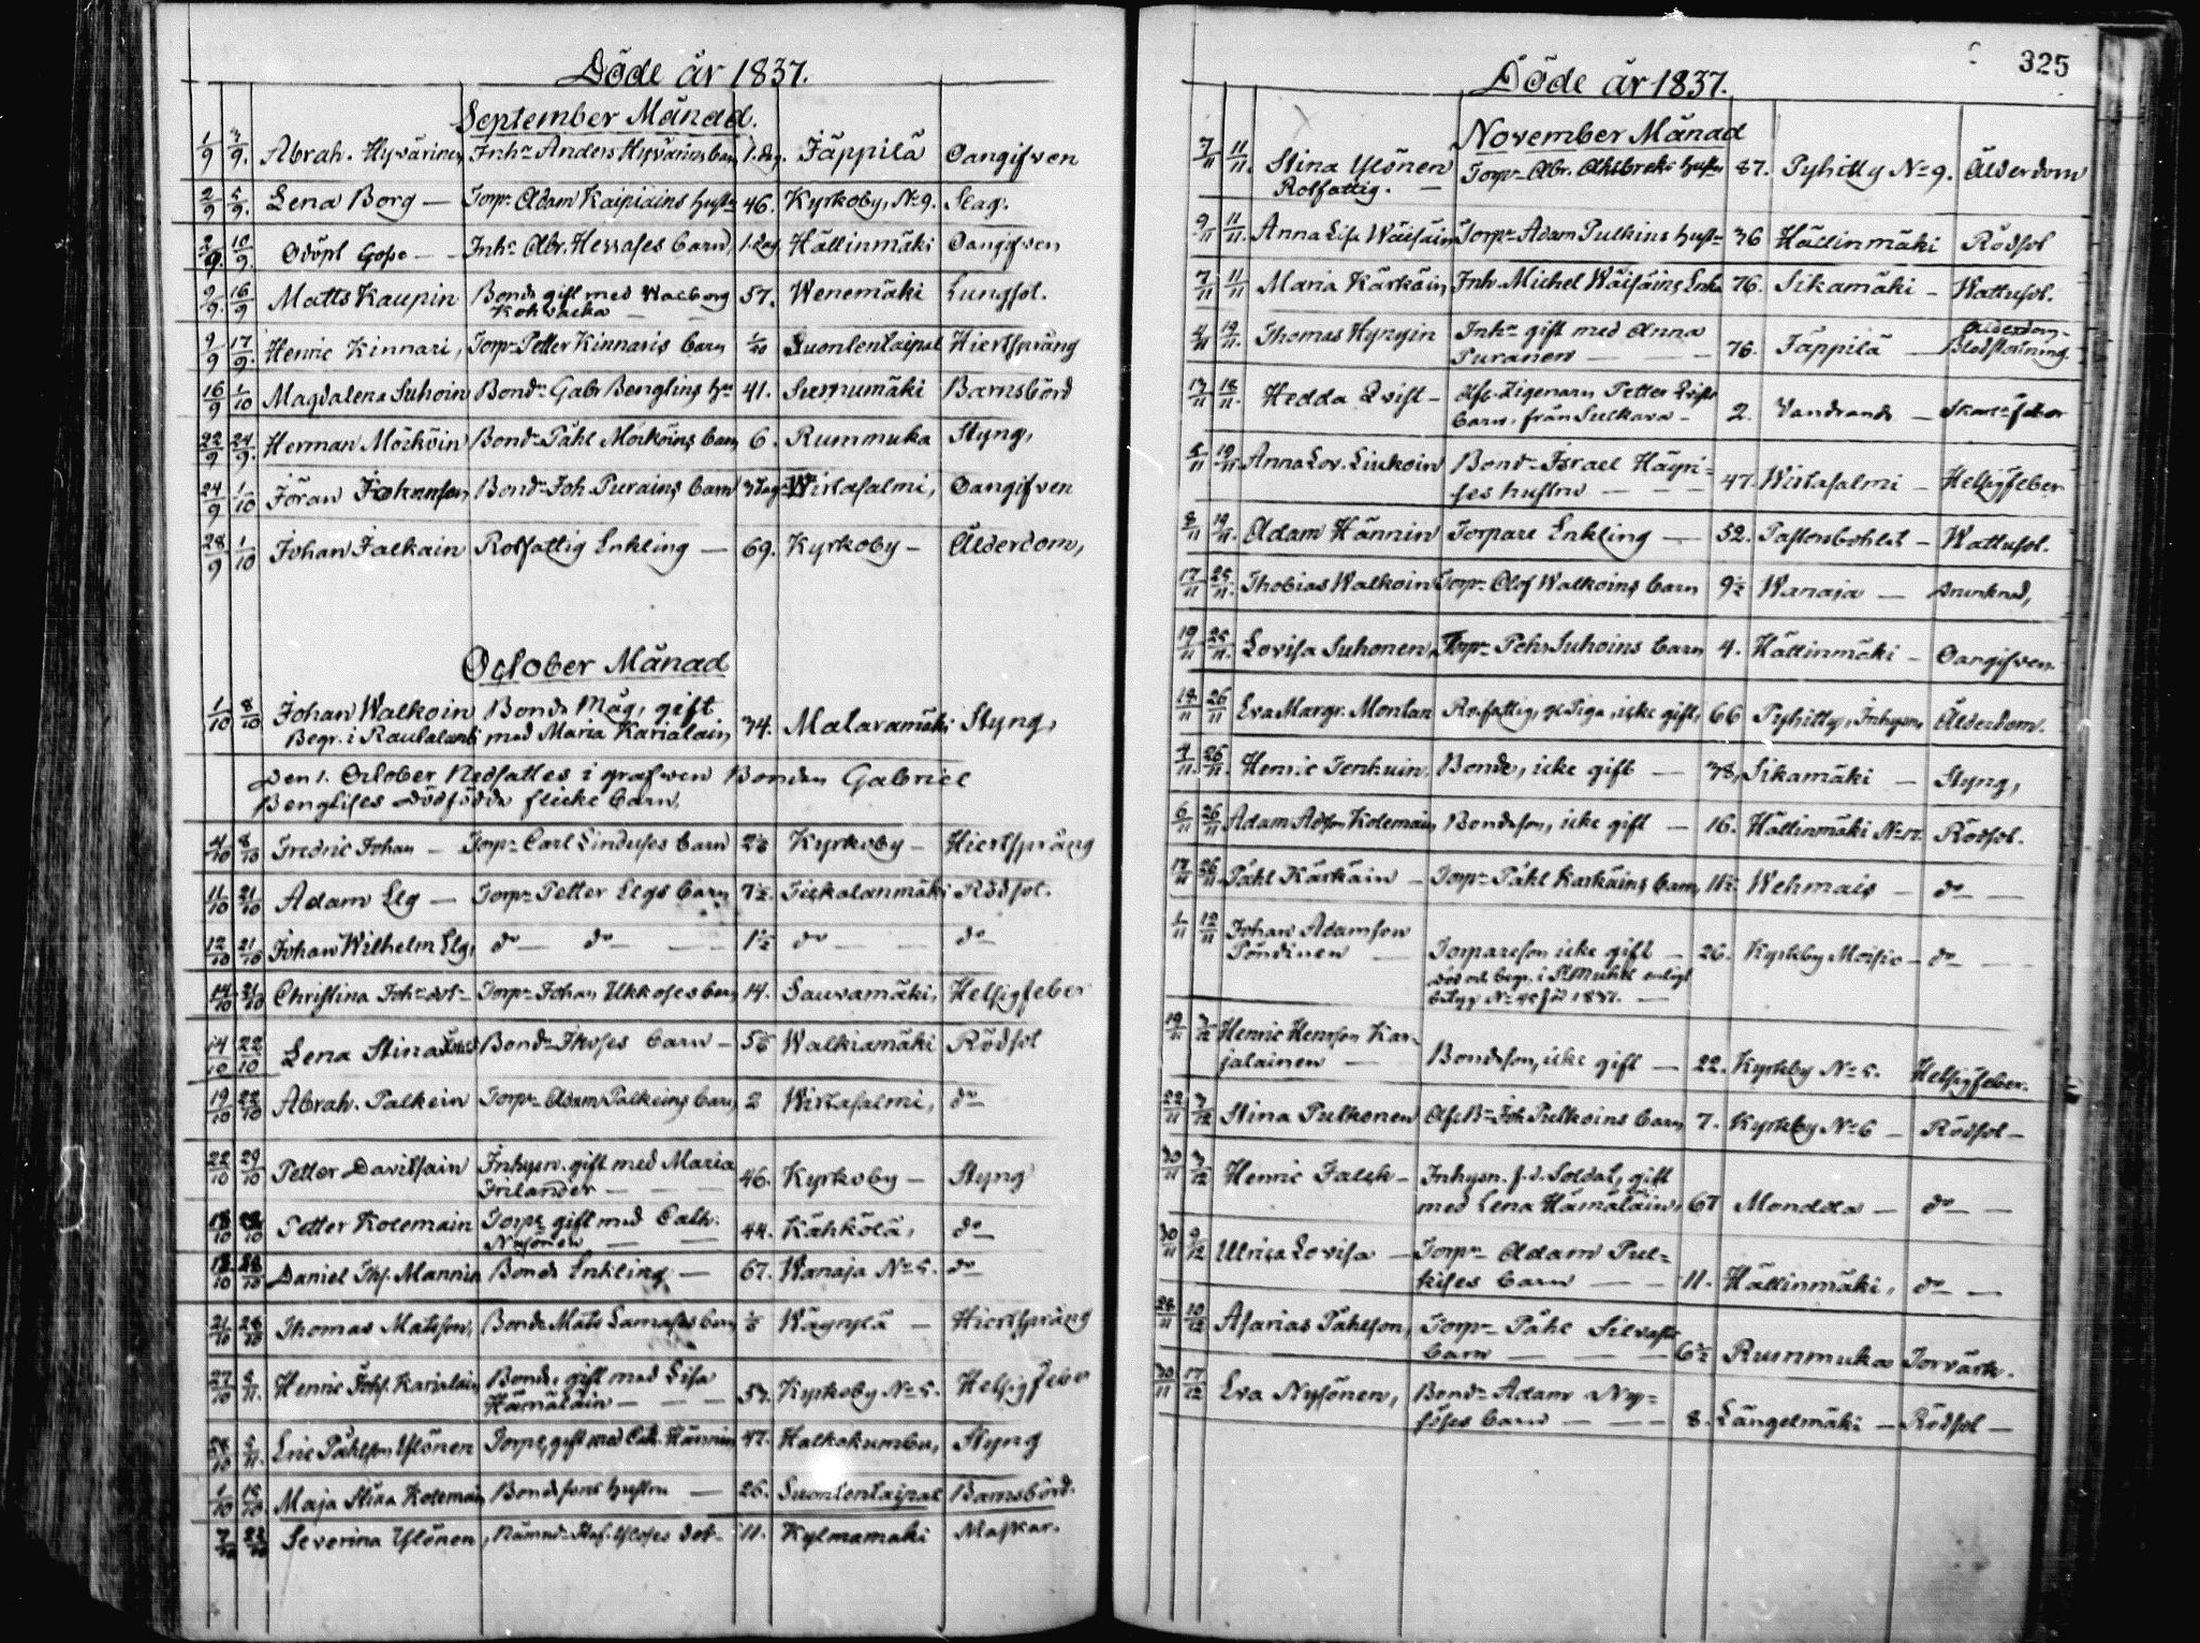 Döde år 1837.
September Månad.
1/9 3/9. Abrah. Hyvärinen Inh:s Anders Hyvärins barn 1. dag. Jäppilä Oangifven
2/9 5/9. Lena Borg — Torp: Adam Kaipiains hust: 46. Kyrkoby, N:o 9. Slag.
2/9. 10/9. Odöpt Gosse — Inh:s Abr. Hessases barn, 1. dag, Hällinmäki Oangifven
9/9. 16/9 Matts Kaupin Bonde gift med Walborg 57. Wenemäki Lungsot.
Kohvacka —
9/9 17/9. Henric Kinnari, Torp: Petter Kinnaris barn Suontentaipal Hiertsprång
16/9 1/10 Magdalena Suhoin Bond: Gabr Bengtins h:u 41. Surnumäki Barnsbörd
22/9 24/9. Herman Mörköin Bond: Påhl Mörköins barn 6. Rummuka Styng,
24/9 1/10 Jöran Johansson Bond: Joh. Purains barn 3 dag: Wirtasalmi, Oangifven
28/9 1/10 Johan Jalkain Rotfattig Enkling — 69. Kyrkoby — Ålderdom,
October Månad
1/10 8/10 Johan Walkoin Bonde Måg, gift 34. Malavamäki Styng,
Begr. i Rautalambi med Maria Karialain,
Den 1. October Nedsattes i grafven Bonden Gabriel
Bengtises dödfödda flicke barn.
4/10 8/10 Fredric Johan — Torp: Carl Linduses barn Kyrkoby — Hiertsprång
11/10 21/10 Adam Elg — Torp: Petter Elgs barn 7 1/2. Jickalanmäki Rödsot.
12/10 21/10 Johan Wilhelm Elg, d:o — d:o — 1 1/2 d:o — d:o
14/10 21/10 Christina Joh:sdot: Torp: Johan Ukkoses barn 14. Sauvamäki, Hetsigfeber
14/10 22/10 Lena Stina Bond: Ikoses barn — Walkiamäki Rödsot
19/10 22/10 Abrah. Palkein Torp: Adam Palkeins barn, 2 Wirtasalmi, d:o
22/10 29/10 Petter Davidsain Inhysn. gift med Maria 46. Kyrkoby — Styng
Frilander —
18/10 Petter Kotemain Torp: gift med Cath. 44. Kähkölä, d:o
Nysönen —
18/10 Daniel Thf. Mannin Bonde Enkling — 67. Wanaja N:o 5. d:o
21/10 28/10 Thomas Matsson, Bonde Mats Lamases barn Wäyrylä — Hiertsprång
27/10 5/11. Henric Johs. Karjalain Bonde gift med Lisa Kyrkoby N:o 5. Hetsig feber
Hämäläin —
28/10 5/11. Eric Påhlsson Ylönen Torp: gift med Cath. Hännin 47. Halkokumbu, Styng
1/10 15/10 Maja Stina Kotemain Bondesons hustru — 26. Suontentaipal Barnsbörd.
7/10 22/10 Severina Ylönen, Nämnd: Staf. Yloses dot: 11. Kylmamäki Maskar.
325
Döde år 1837.
November Månad
7/11 11/11. Stina Ylönen Torp: Abr. hust: 87. Pyhitty N:o 9. Ålderdom
Rotfattig. —
9/11 11/11. Anna Lisa Wäisäin Torp: Adam Pulkins hust: 36 Hällinmäki Rödsot
7/11 11/11 Maria Kärkäin, Inh. Michel Wäisäins Enka 76. Sikamäki — Wattusot.
4/11 12/11. Thomas Hyngin Inh:s gift med Anna 76. Jäppilä — Ålderdom.
Puranen — Blodstörtning.
13/11 18/11. Hedda Qvist — Afl. Zigenarn Petter Qvists 2. Vandrande — feber
barn, från Sulkava —
5/11 19/11. Anna Lov. Liukoin Bond: Israel Häyri= 47. Wirtasalmi — Hetsigfeber
ses hustru —
8/11 19/11. Adam Hännin Torpare Enkling — 52. Wattusot.
17/11 25/11. Thobias Walkoin Torp: Olof Walkoins barn 9 1/2 Wanaja — Drunknad,
19/11 25/11. Lovisa Suhonen, Torp: Pehr Suhoins barn 4. Hällinmäki — Oangifven.
18/11 26/11 Eva Margr. Montan Rotfattig, Piga, icke gift, 66 Pyhitty, Inhysn, Ålderdom.
26/11. Henric Tenhuin, Bonde, icke gift — 38, Sikamäki — Styng,
6/11 26/11 Adam Adsson Kotemain, Bondeson, icke gift — 16. Hällinmäki N:o 12. Rödsot.
17/11 26/11. Påhl Kärkäin — Torp: Påhl Kärkäins barn, 11 1/2. Wehmais — d:o —
1/11 12/11 Johan Adamsson
Pöndinen — Torpareson icke gift — 26. Kyrkby Moisio — d:o —
död och begr. i St Michel enligt
betyg N:o 45 för 1837. —
19/11 3/12 Henric Henrsson Kar=
jalainen — Bondeson, icke gift — 22. Kyrkby N:o 5. Hetsigfeber.
22/11 3/12 Stina Pulkonen Afl. B: Joh Pulkoins barn 7. Kyrkby N:o 6 — Rödsot —
30/11 3/12 Henric Falck — Inhysn. f. d. Soldat, gift
med Lena Hämäläin, 67 Mondola — d:o —
30/11 9/12 Ulrica Lovisa — Torp: Adam Pul=
kises barn — 11. Hällinmäki, d:o —
28/11 10/12 Asarias Påhlsson, Torp: Påhl Silvasts
barn — 6 1/2 Rummukas Torvärk.
30/11 17/12 Eva Nysönen, Bond: Adam Ny=
söses barn — 8. Längelmäki — Rödsot —